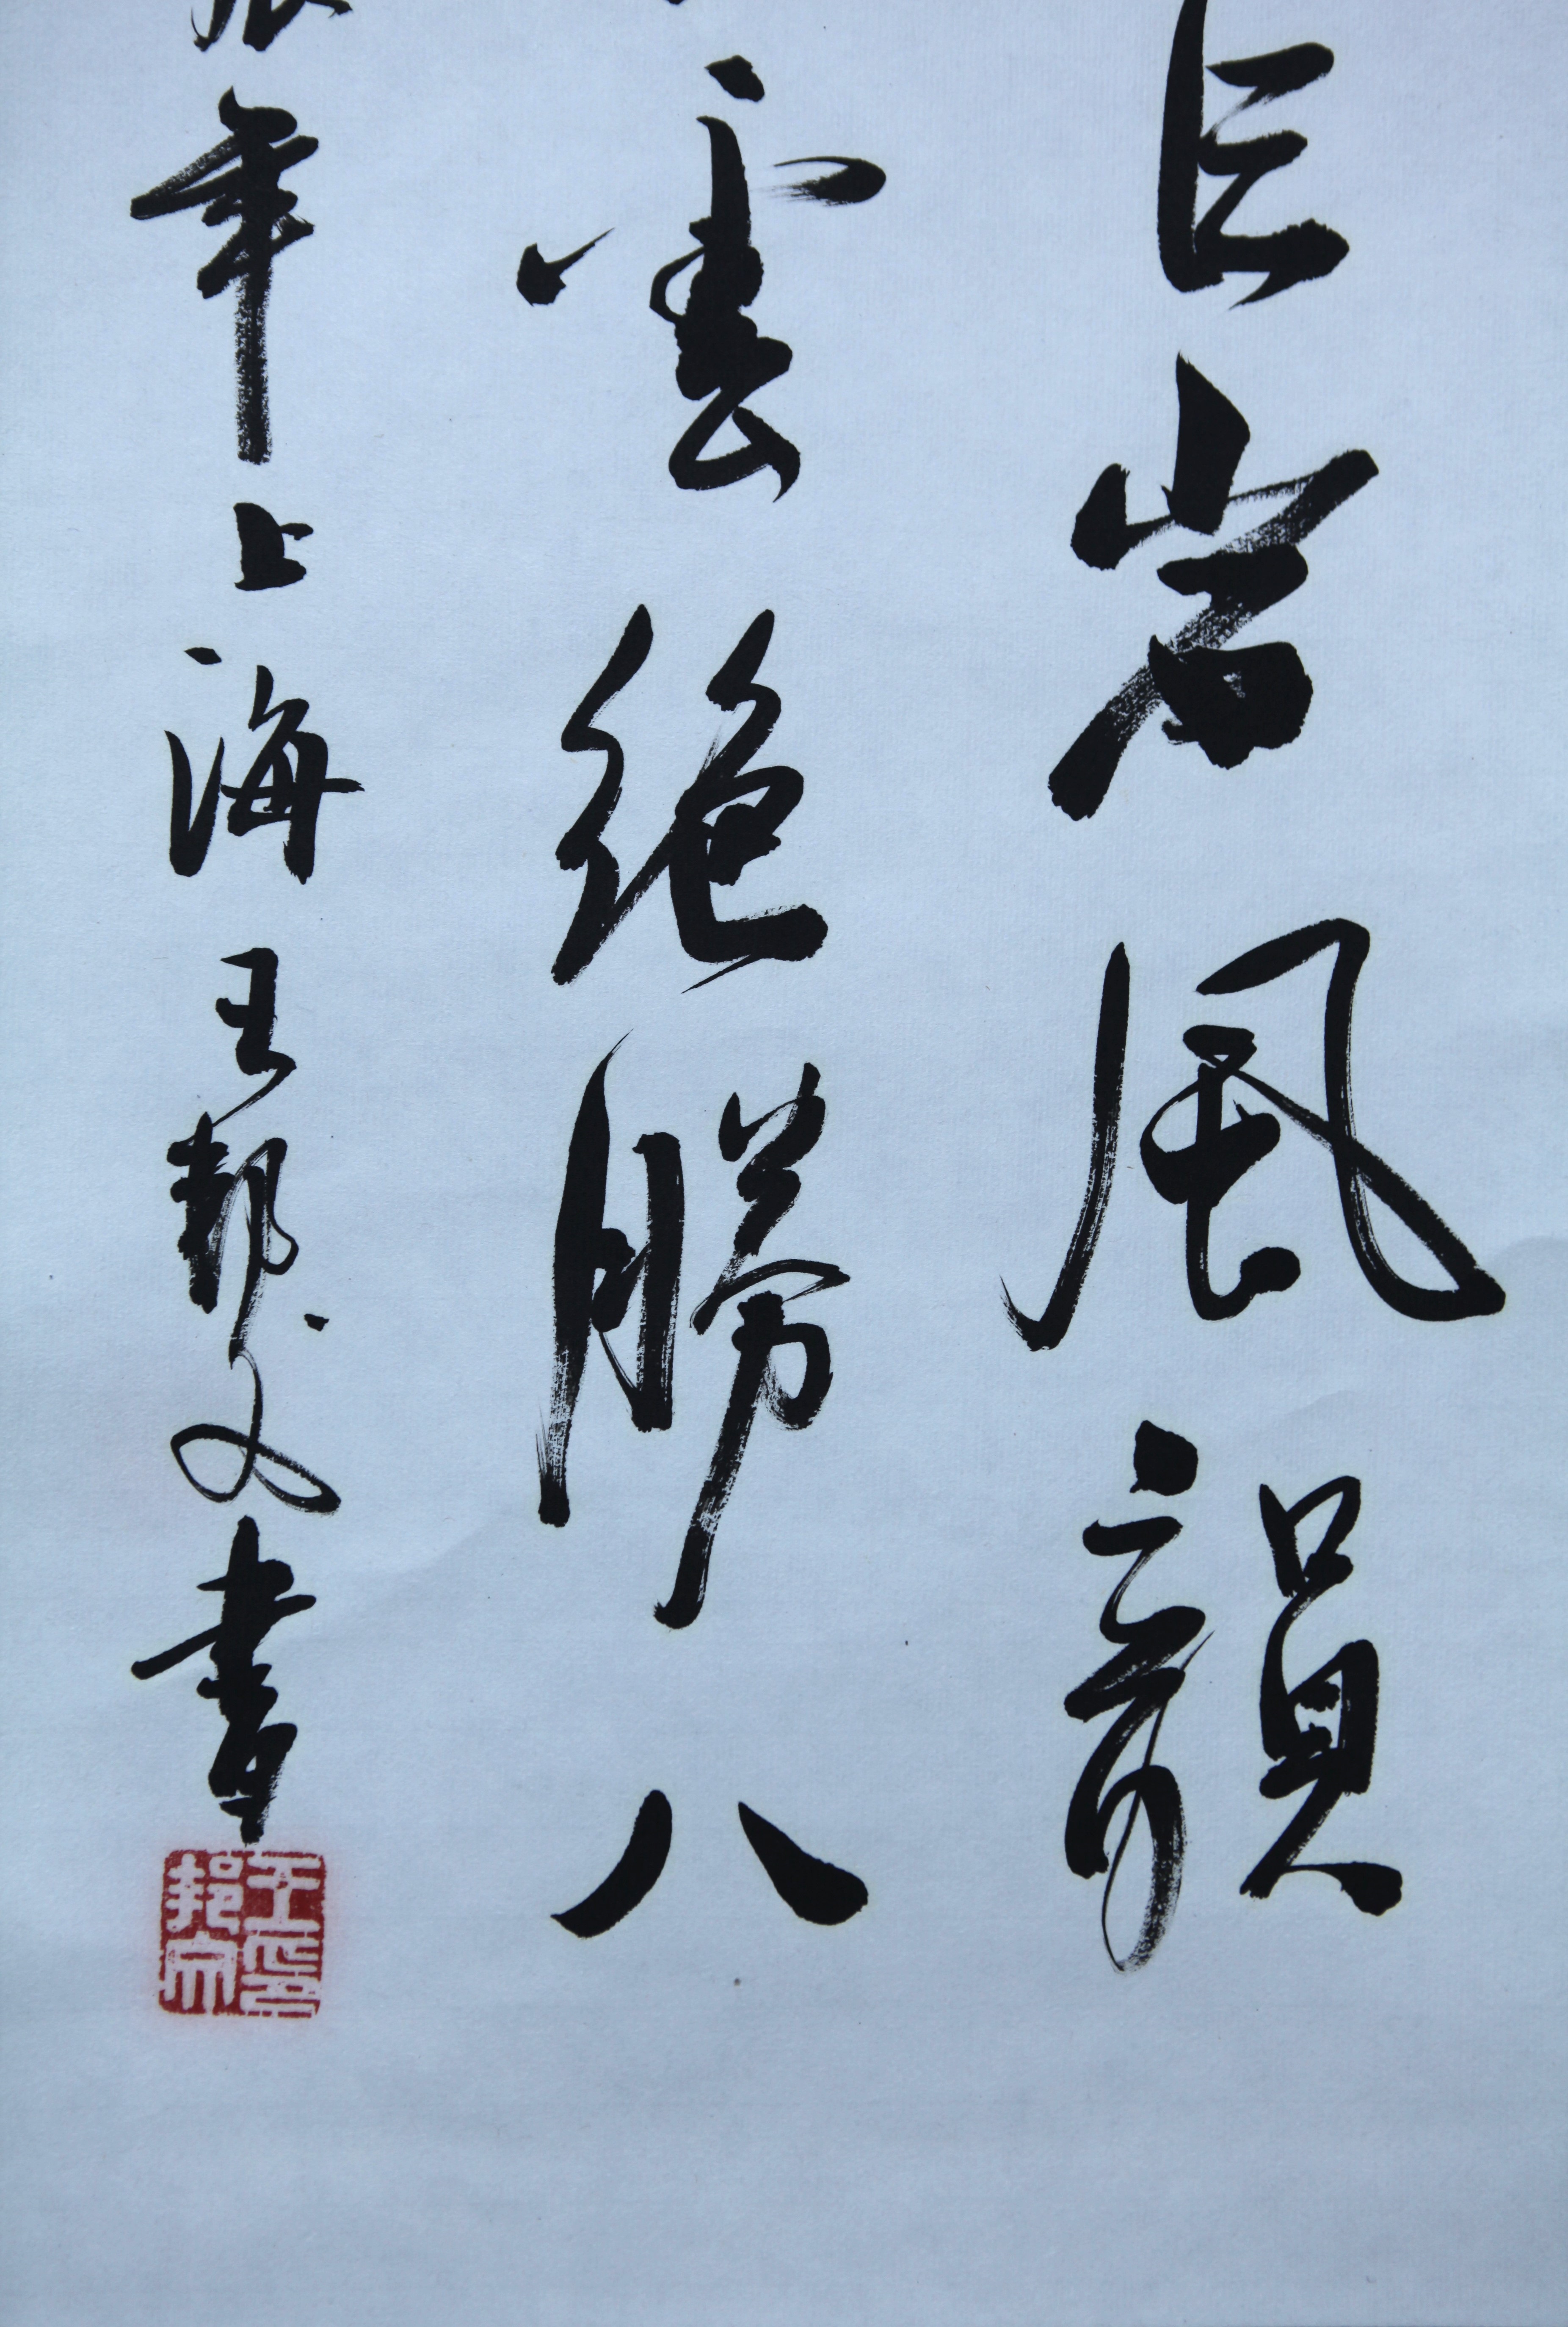 巨岩風韻
雲絶勝八
年上海王邦文書
王印邦文